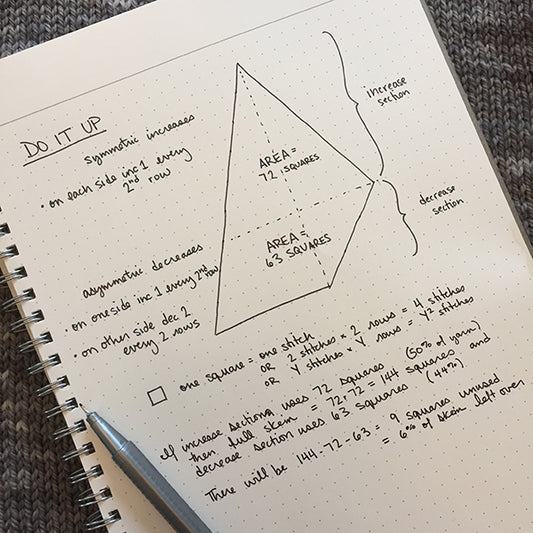 DO IT UP
symmetric increases
• on each side inc 1 every
2nd row
AREA =
72 SQUARES
increase
section
asymmetric decreases
• on one side inc 1 every 2nd row
• on other side dec 2
every 2 rows
AREA =
63 SQUARES
decrease
section
one square = one stitch
OR 2 stitches × 2 rows = 4 stitches
OR Y stitches × Y rows = Y² stitches
If increase section uses 72 squares (50% of yarn)
then full skein = 72+72 = 144 squares and
decrease section uses 63 squares (44%)
There will be 144-72-63 = 9 squares unused
= 6% of skein left over